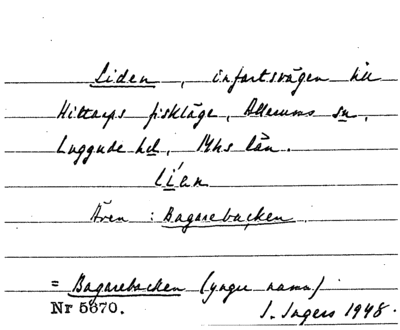 Liden, infartsvägen till
Hittarps fiskläge, Allerums sn,
Luggude hd, Mhs län.
li´en
Även: Bagarebacken.
= Bagarebacken (yngre namn)
Nr 5670. I. Ingers 1948.